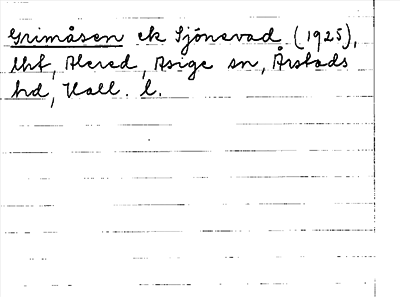 Grimåsen ek Sjönevad (1925),
Uht, Alered, Asige sn, Årstads
hd, Hall. l.